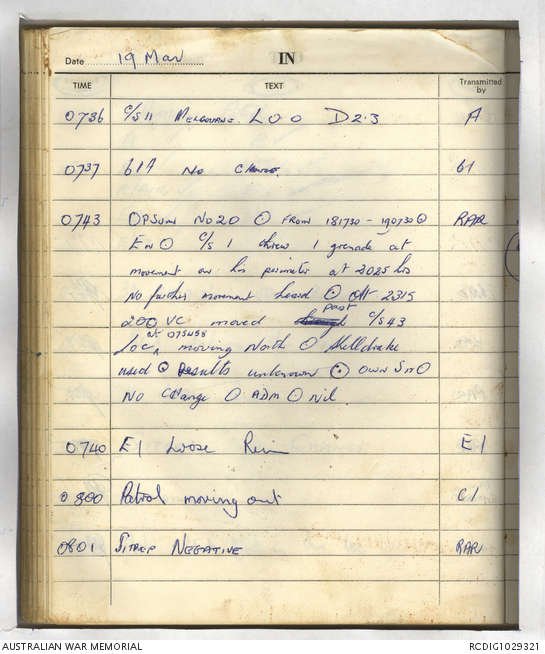 Date 19 Mar IN
TIME TEXT Transmitted by
0736 C/S 11 MELBOURNE. L O O D2.3 A
0737 61A No CHANGE. 61
0743 OPSUM No 20 ⊙ FROM 181730 - 190730 ⊙ RAR
EN O C/S 1 threw 1 grenade at
movement on his perimeter at 2025 hrs
No further movement heard ⊙ at 2315
200 VC moved past C/S 43
Loc at 075458 moving North O Shelldrake
used ⊙ Results unknown ⊙ OWN SM O
No Change O ADM O Nil
0740 E1 Loose Rein E1
0800 Patrol moving out C1
0801 SITREP NEGATIVE RAR
AUSTRALIAN WAR MEMORIAL RCDIG1029321